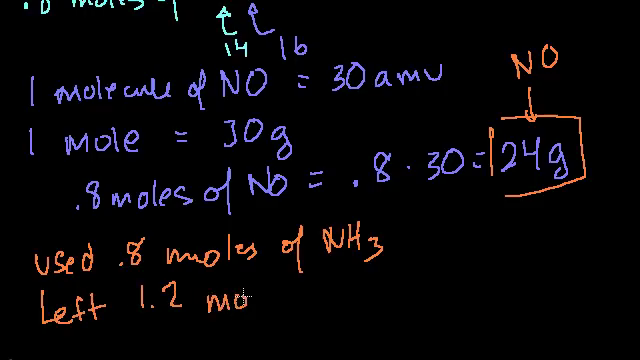 .8 moles of
14 16
1 molecule of NO = 30 amu
NO
1 mole = 30g
.8 moles of NO = .8 · 30 = 24g
used .8 moles of NH3
Left 1.2 mo